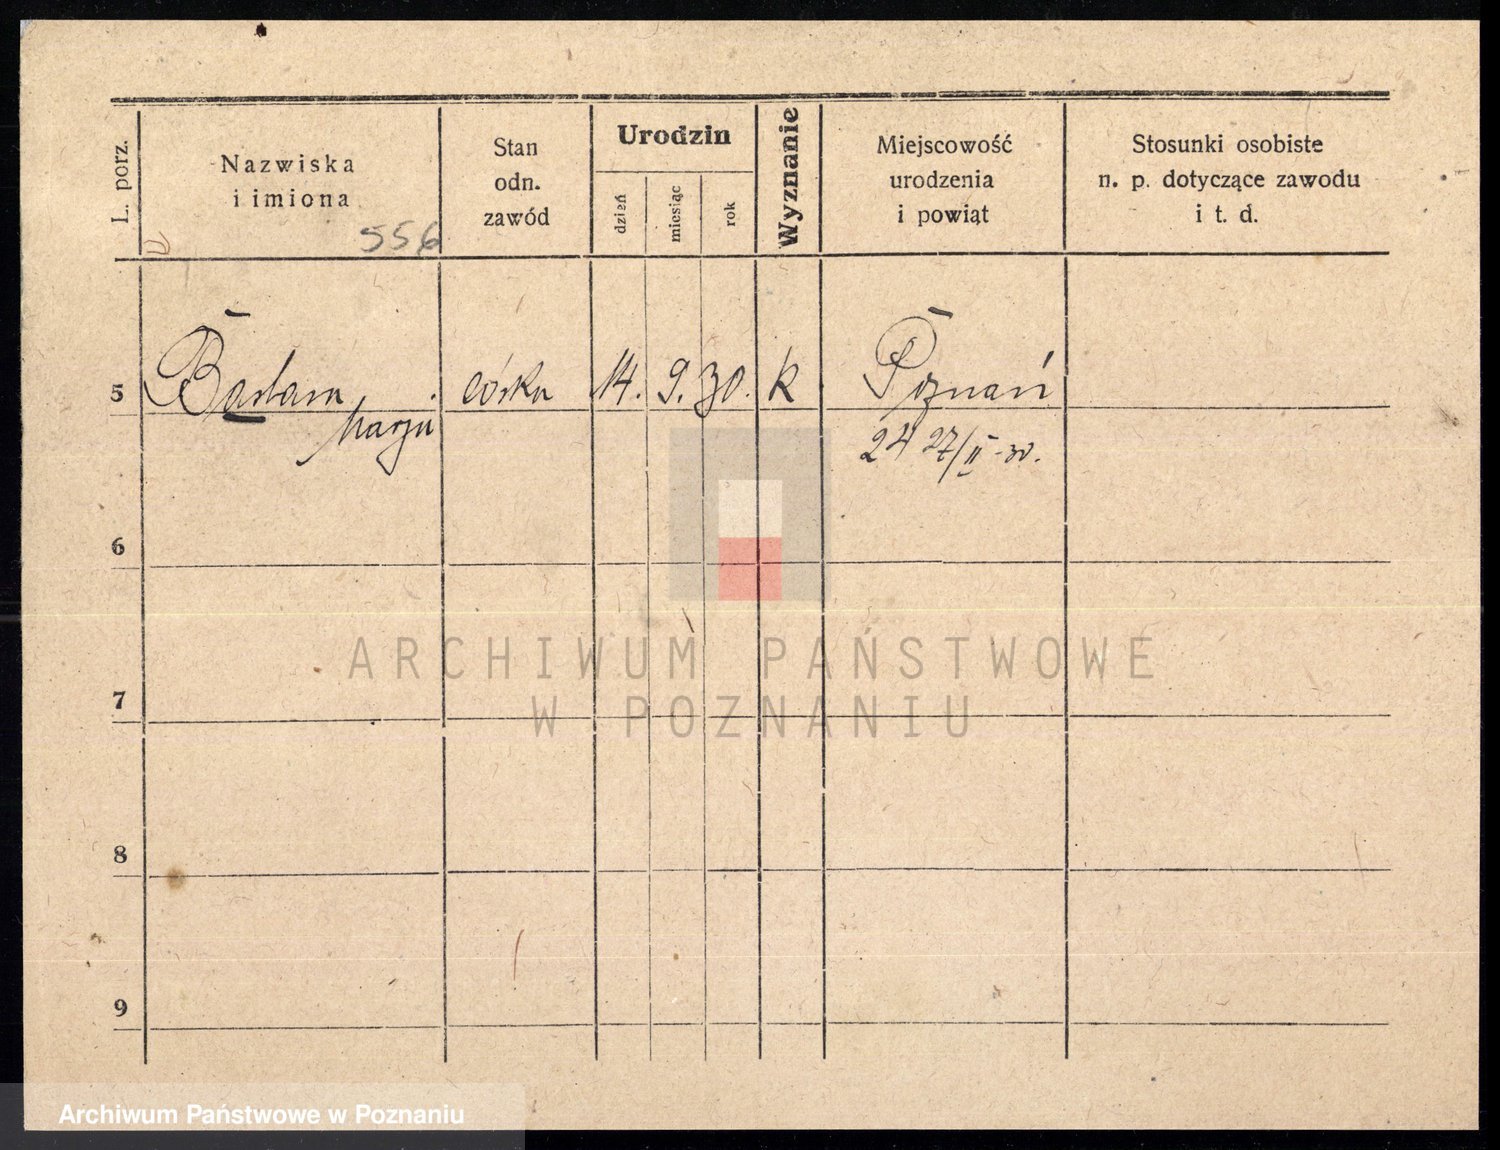 L. porz.
Nazwiska
i imiona
556
Stan
odn.
zawód
Urodzin
dzień
miesiąc
rok
Wyznanie
Miejscowość
urodzenia
i powiąt
Stosunki osobiste
n. p. dotyczące zawodu
i t. d.
5 Barbara córka 14. 9. 30. k Poznań
Marja
24 27/II - 30.
6
7
8
9
ARCHIWUM PAŃSTWOWE
W POZNANIU
Archiwum Państwowe w Poznaniu